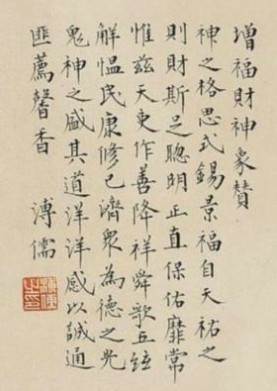 增福財神象贊
神之格思式錫景福自天祐之
則財斯足聰明正直保佑靡常
惟茲天吏作善降祥舜歌五絃
解慍民康修己濟衆為德之光
鬼神之盛其道洋洋感以誠通
匪薦馨香 溥儒